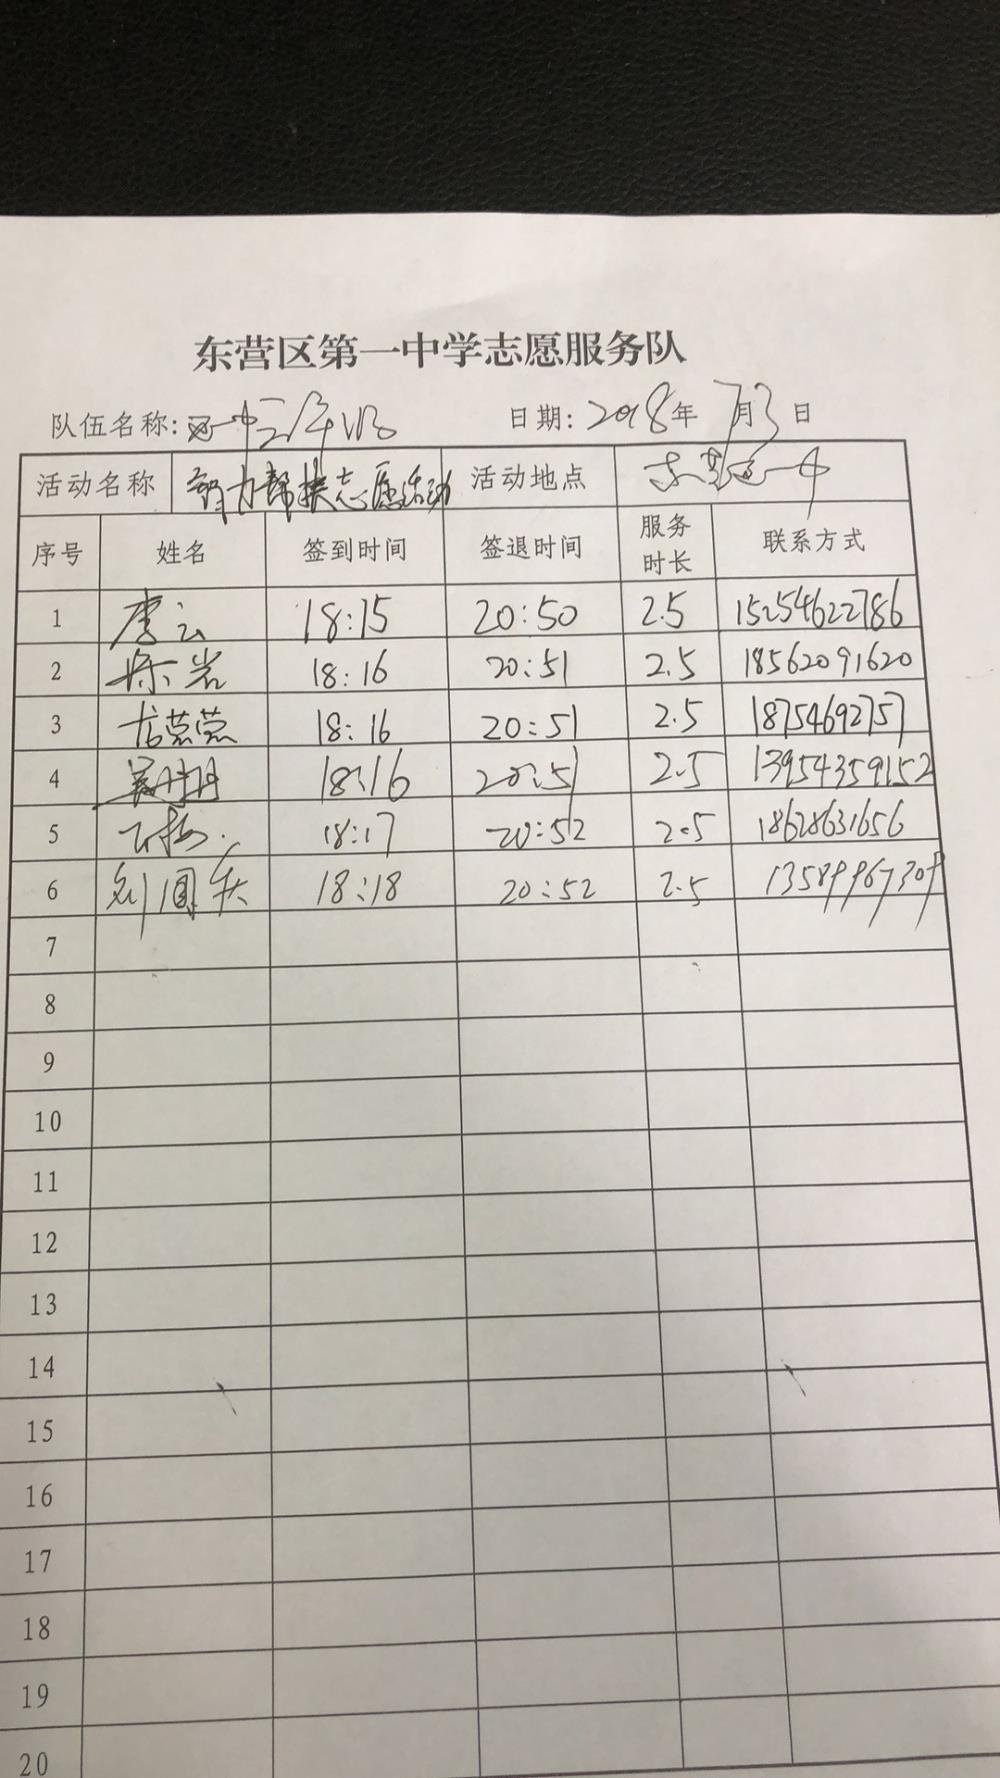 东营区第一中学志愿服务队
队伍名称: 日期: 2018年 7月3日
活动名称 智力帮扶志愿活动 活动地点 东营区一中
序号 姓名 签到时间 签退时间 服务时长 联系方式
1 李云 18:15 20:50 2.5 15254622786
2 陈岩 18:16 20:51 2.5 18562091620
3 18:16 20:51 2.5 18754692757
4 18:16 20:51 2.5 13954359152
5 18:17 20:52 2.5 18628631656
6 18:18 20:52 2.5
7
8
9
10
11
12
13
14
15
16
17
18
19
20